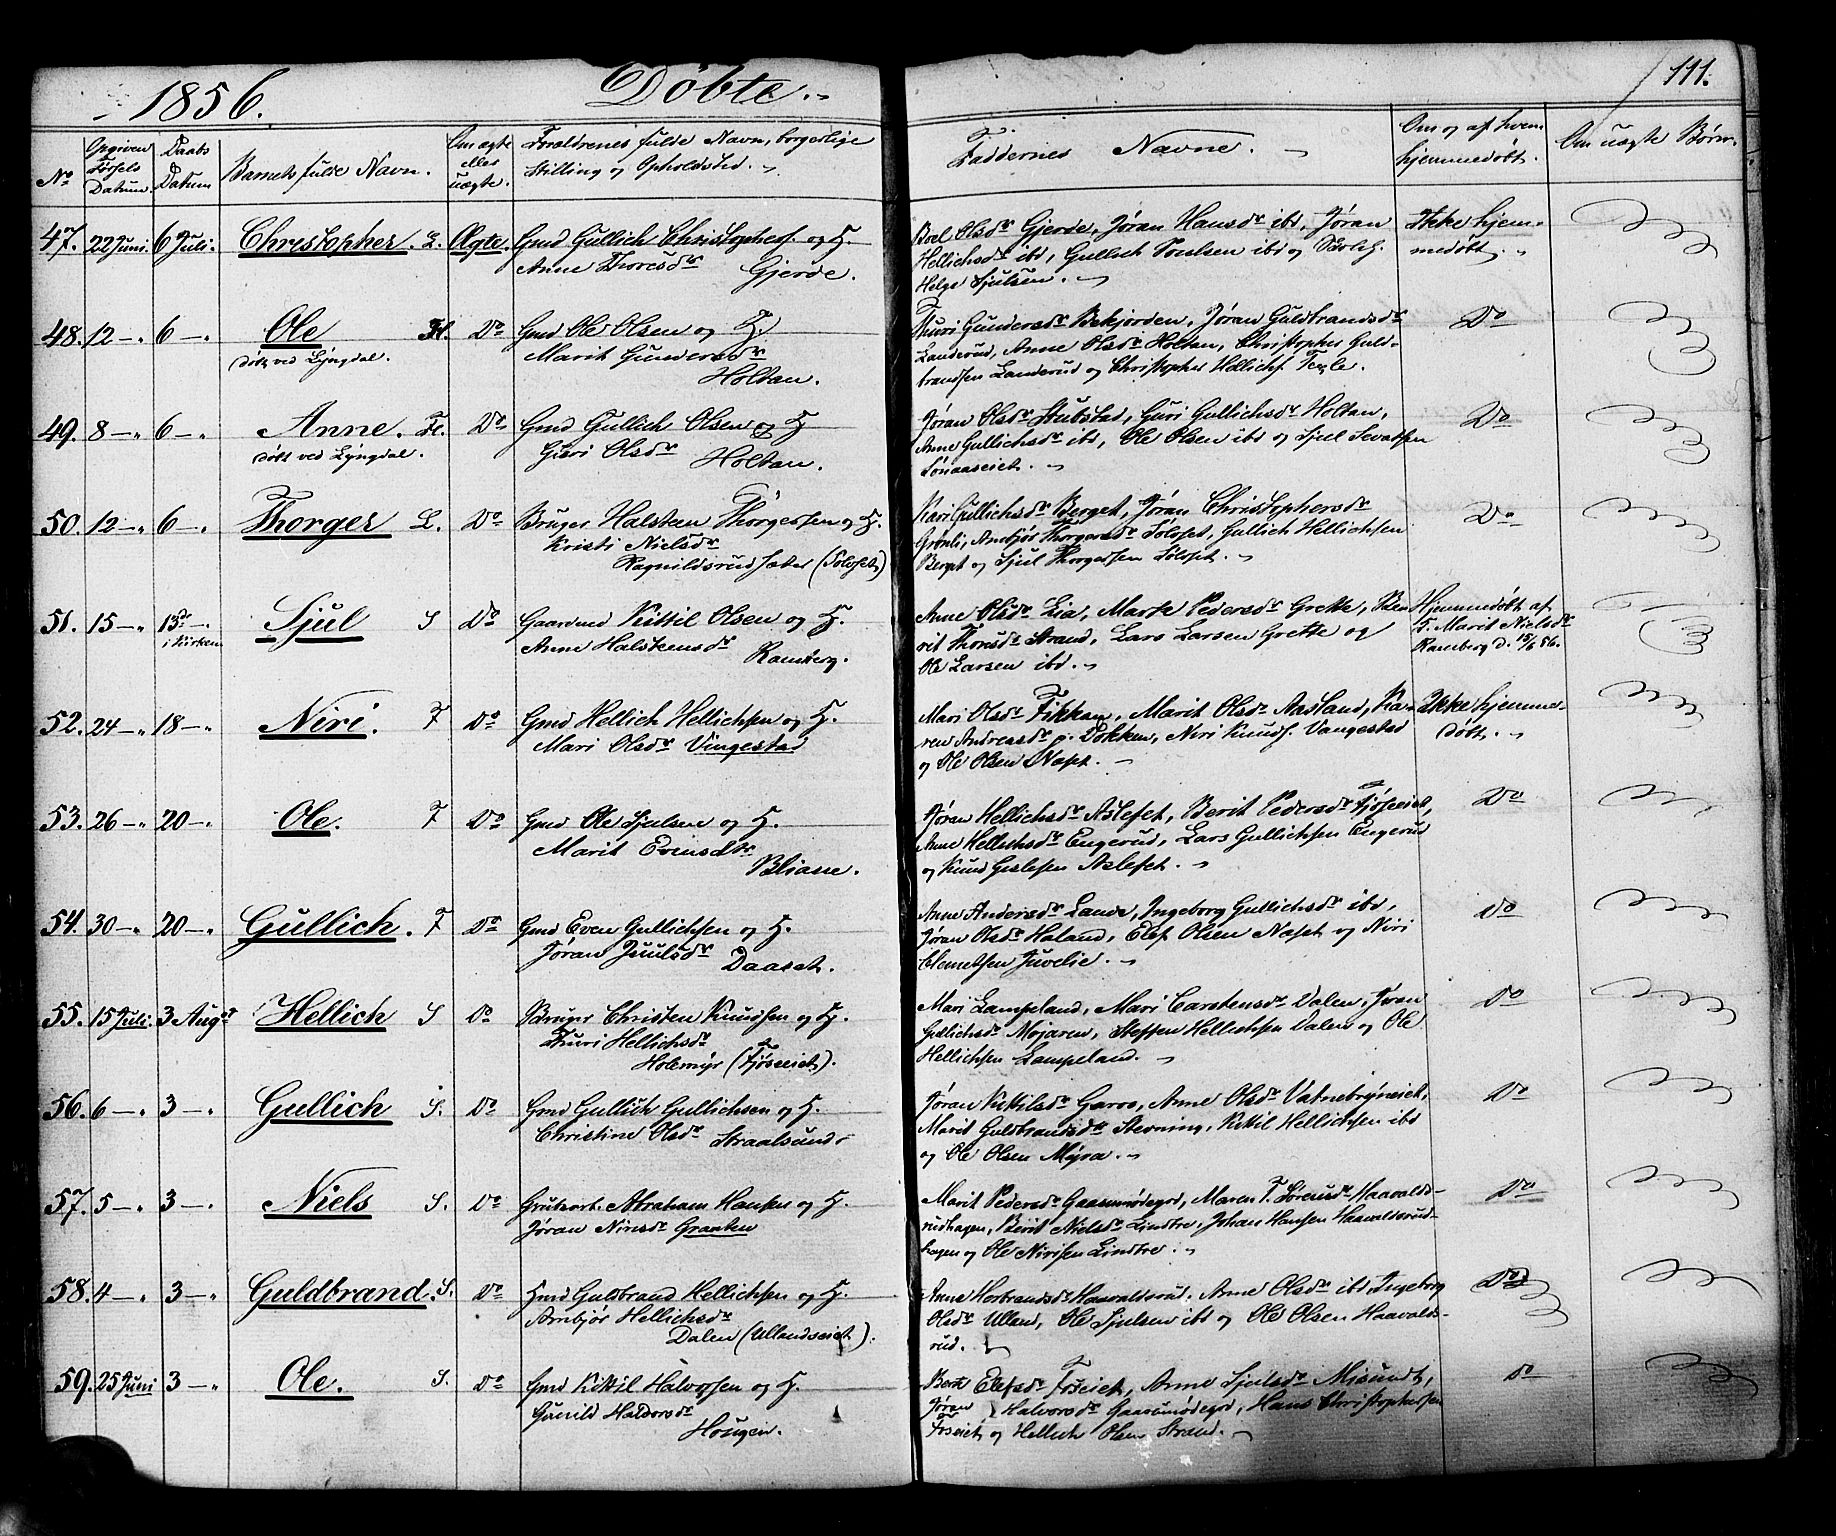 1856. Döbte.
111.
No
Opgiven Fødsels Datum.
Daabs Datum
Barnets fulde Navn.
Om ægte eller uægte.
Forældrenes fulde Navn, borgerlige Stilling og Opholdsted.
Faddernes Navne.
Om og af hvem hjemmedøbt.
Om uægte Børn.
47. 22 Juni. 6 Juli. Christopher. L. Ægte. Gmd Gullich Christophers. og H.
Anne Thoresdr Gjerde.
Boel Olsdr Gjerde, Jøran Hansdr ibd, Jøran
Hellichsdr ibd, Gullich Poulsen ibd og
Helge Sjulsen.
Ikke hjem-
medøbt.
48. 12 6 Ole Fl. Do Gmd Ole Olsen og H.
døbt ved Lyngdal.
Marit Gundersdr
Holtan.
Thuri Gundersdr Bekjorden, Jøran Guldbrandsdr
Landerud, Anne Olsdr Holtan, Christopher Guld-
brandsen Landerud og Christopher Hellichs.
Do
49. 8 6 Anne. Fl. Do Gmd Gullich Olsen og H
døbt ved Lyngdal.
Guri Olsdr Holtan.
Jøran Olsdr Stubstad, Guri Gullichsdr Holtan,
Anne Gullichsdr ibd, Ole Olsen ibd og Sjul
Do
50. 12 6 Thorger L. Do Bruger Halsten Thorgersen og H.
Kristi Nielsdr
Ragnildsrudsæter (Foloset)
Kari Gullichsdr Berget, Jøran Christophersdr
Grønli, Anbjør Thorgersdr Foloset, Gullich Hellichsen
Berget og Sjul Thorgersen Foloset.
Do
51. 15 13de i Kirken Sjul S Do Gaardmd Kittil Olsen og H.
Anne Halstensdr
Ramberg.
Anne Olsdr Lia, Marte Pedersdr Grette, Be-
rit Thorsdr Strand, Lars Larsen Grette og
Ole Larsen ibd.
Hjemmedøbt af
J. Marit Nielsdr
Ramberg d. 15/6 56.
52. 24 18 Niri. F Do Gmd Hellich Hellichsen og H.
Mari Olsdr Vingestad
Mari Olsdr Fikkan, Marit Olsdr Aasland, Ka-
ren Andreasdr p. Dokken, Niri Knuds. Vangestad
og Ole Olsen Napt.
Ikke hjemme-
døbt.
53. 26 20 Ole. F Do Gmd Ole Sjulsen og H.
Marit Evensdtr
Bliasse.
Jøran Hellichsdr Aslefet, Berit Pedersdr Fjøseiet,
Anne Hellichsdr Engerud, Lars Gullichsen Engerud
og Knud Gislesen Aslefet.
Do
54. 30 20 Gullich. F Do Gmd Even Gullichsen og H.
Jøran Juulsdr Daaset.
Anne Andersdr Lande, Ingeborg Gullichsdr ibd,
Jøran Olsdr Haland, Elef Olsen Napt og Niri
Clemetsen Juvelie.
Do
55. 15 Juli. 3 Augst Hellich S Do Bruger Christen Knudsen og H.
Thuri Hellichsdr
Holemyr (Fjøseiet).
Mari Lampeland, Mari Carstensdr Dalen, Jøran
Gullichsdr Mojaren, Steffen Hellichsen Dalen og Ole
Hellichsen Lampeland.
Do
56. 6 3 Gullich S. Do Gmd Gullich Gullichsen og H.
Christine Olsdr Straalsund
Jøran Kittilsdr Garos, Anne Olsdr Vatnebrynseiet,
Marit Guldbrandsdr Stevning, Kittil Hellichsen ibd
og Ole Olsen Myra.
Do
57. 5 3 Niels S. Do Grubearb. Abraham Hansen og H.
Jøran Nirisdr Graaten
Marit Pedersdr Gaasmødegrd, Maren F. Sørensdr Haavalds-
rudhagen, Berit Nielsdr Lindtre, Johan Hansen Haavaldsrud-
hagen og Ole Nirisen Lindtre.
Do
58. 4 3 Guldbrand. S. Do Hmd Guldbrand Hellichsen og H.
Anbjør Hellichsdr
Dalen (Ullandseiet).
Anne Herbrandsdr Haavaldsrud, Anne Olsdr ibd Ingeborg
Olsdr Ulland, Ole Sjulsen ibd og Ole Olsen Haavalds-
rud.
Do
59. 25 Juni 3 Ole. S. Do Gmd Kittil Halvorsen og H.
Gunild Haldorsdr
Hougen.
Berte Elefsdr Foseiet, Anne Sjulsdr Misundt,
Jøran Halvorsdr Gaasmødegrd, Hans Christophersen
Foseiet og Hellich Olsen Strand.
Do